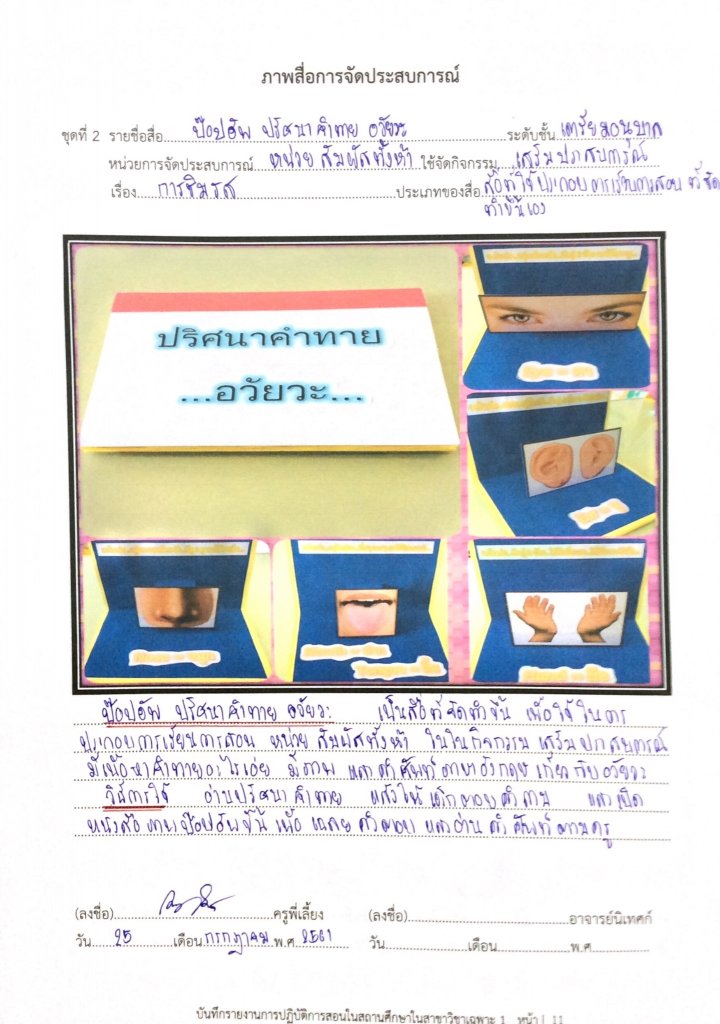 ภาพสื่อการจัดประสบการณ์
ชุดที่ 2 รายชื่อสื่อ...ป๊อปอัพ ปริศนาคำทาย อวัยวะ...ระดับชั้น...เตรียมอนุบาล
หน่วยการจัดประสบการณ์ หน่วย สัมผัสทั้งห้า ใช้จัดกิจกรรม...เสริมประสบการณ์
เรื่อง...การชิมรส...ประเภทของสื่อ สื่อที่ใช้ประกอบการเรียนการสอน ที่จัด
ทำขึ้นเอง
ปริศนาคำทาย
...อวัยวะ...
ป๊อปอัพ ปริศนาคำทาย อวัยวะ เป็นสื่อที่จัดทำขึ้น เพื่อใช้ในการ
ประกอบการเรียนการสอน หน่วย สัมผัสทั้งห้า ในกิจกรรม เสริมประสบการณ์
มีเนื้อหาคำทายอะไรเอ่ย มีภาพ และคำศัพท์ภาษาอังกฤษ เกี่ยวกับอวัยวะ
วิธีการใช้ อ่านปริศนาคำทาย แล้วให้เด็กตอบคำถาม และเปิด
หนังสือ ภาพป๊อปอัพขึ้น เพื่อ เฉลย คำตอบ และอ่าน คำศัพท์ตามครู
(ลงชื่อ)...ครูพี่เลี้ยง (ลงชื่อ)...อาจารย์นิเทศก์
วัน...25...เดือน กรกฎาคม พ.ศ. 2561 วัน...เดือน...พ.ศ...
บันทึกรายงานการปฏิบัติการสอนในสถานศึกษาในสาขาวิชาเฉพาะ 1 หน้า | 11